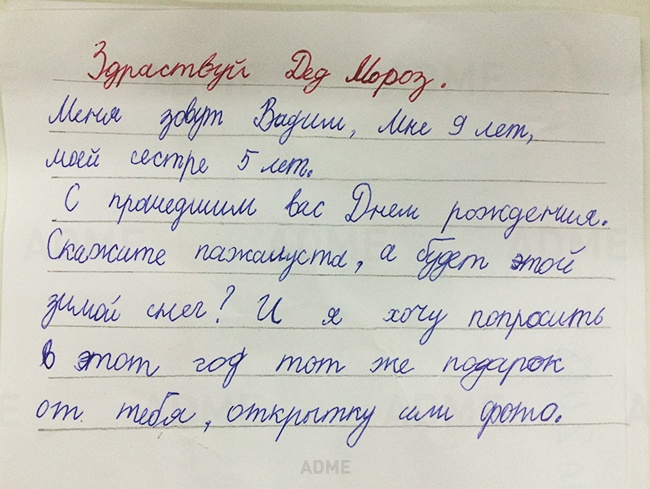 Здраствуй Дед Мороз.
Меня зовут Вадим, Мне 9 лет,
моей сестре 5 лет.
С прошедшим вас Днем рождения.
Скажите пажалуста, а будет этой
зимой снег? И я хочу попросить
в этот год тот же подарок
от тебя, открытку или фото.
ADME